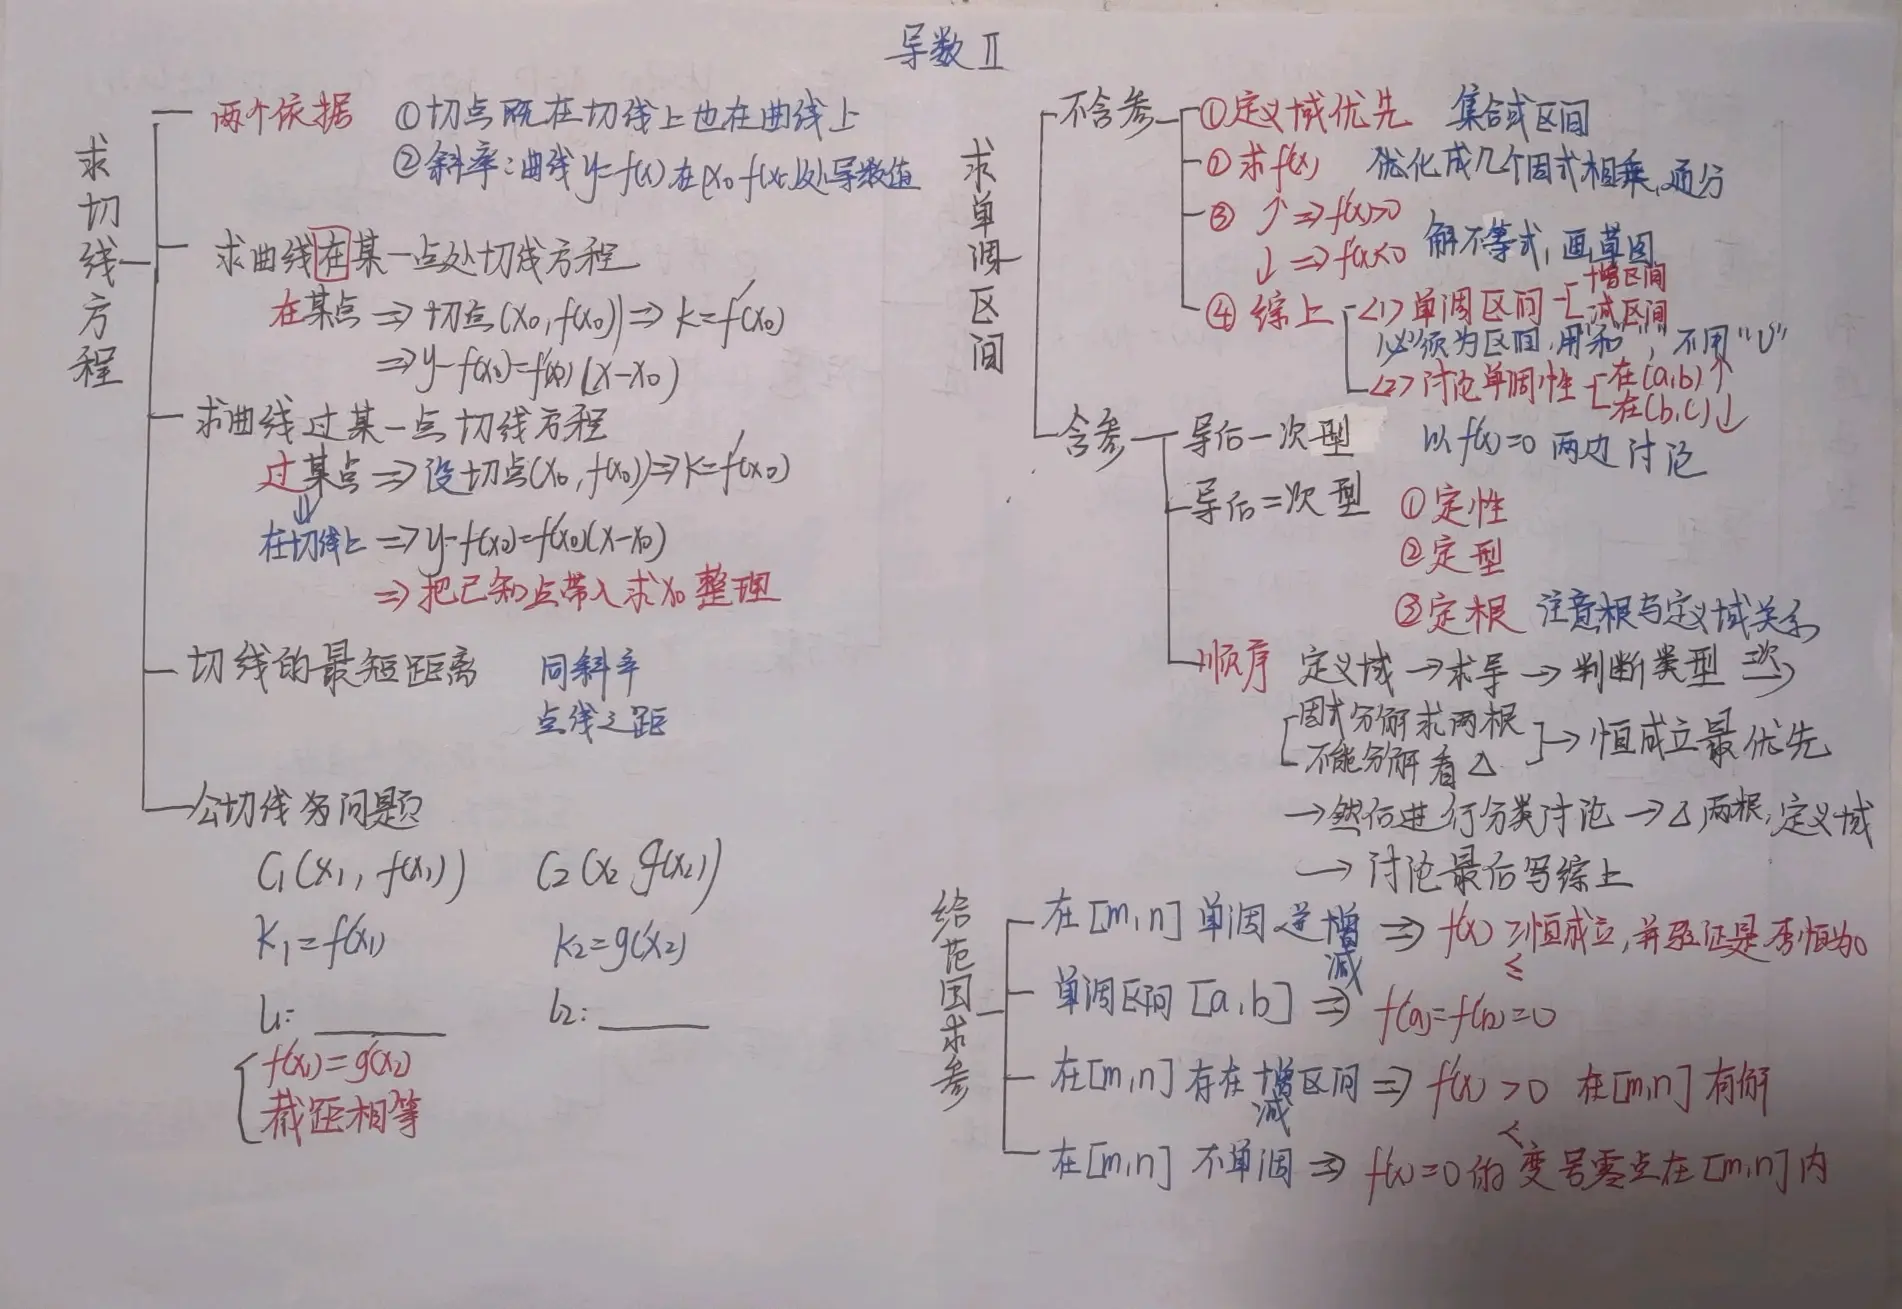 导数Ⅱ
求切线方程
两个依据 ①切点既在切线上也在曲线上
②斜率：曲线y=f(x)在(x₀ f(x₀))处导数值
求曲线在某一点处切线方程
在某点 ⇒ 切点(x₀, f(x₀)) ⇒ k=f'(x₀)
⇒ y-f(x₀)=f'(x₀)(x-x₀)
求曲线过某一点切线方程
过某点 ⇒ 设切点(x₀, f(x₀)) ⇒ k=f'(x₀)
⇓
在切线上 ⇒ y-f(x₀)=f'(x₀)(x-x₀)
⇒ 把已知点带入求x₀整理
切线的最短距离 同斜率
点线之距
公切线为问题
C₁(x₁, f(x₁)) C₂(x₂ g(x₂))
k₁=f'(x₁) k₂=g'(x₂)
l₁: ______ l₂: ______
f'(x₁)=g'(x₂)
截距相等
求单调区间
不含参 ①定义域优先 集合或区间
②求f'(x) 优化成几个因式相乘，通分
③ ↑ ⇒ f'(x)>0
↓ ⇒ f'(x)<0 解不等式，画草图
④综上 <1>单调区间 增区间
减区间
必须为区间，用"和"，不用"∪"
<2>讨论单调性 在(a,b)↑
在(b,c)↓
含参 导后一次型 以f'(x)=0两边讨论
导后二次型 ①定性
②定型
③定根 注意根与定义域关系
顺序 定义域→求导→判断类型 二次→
因式分解求两根
不能分解看△ → 恒成立最优先
→然后进行分类讨论→△，两根，定义域
→讨论最后写综上
给范围求参
在[m,n]单调递增 ⇒ f'(x)≥恒成立，并验证是否恒为0
减 ≤
单调区间[a,b] ⇒ f'(a)=f'(b)=0
在[m,n]存在增区间 ⇒ f'(x)>0 在[m,n]有解
减 <
在[m,n]不单调 ⇒ f'(x)=0的变号零点在[m,n]内